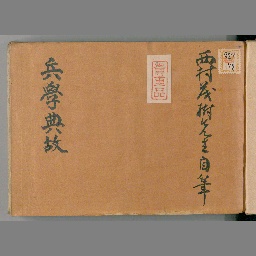 西村茂樹先生自筆
兵學典故